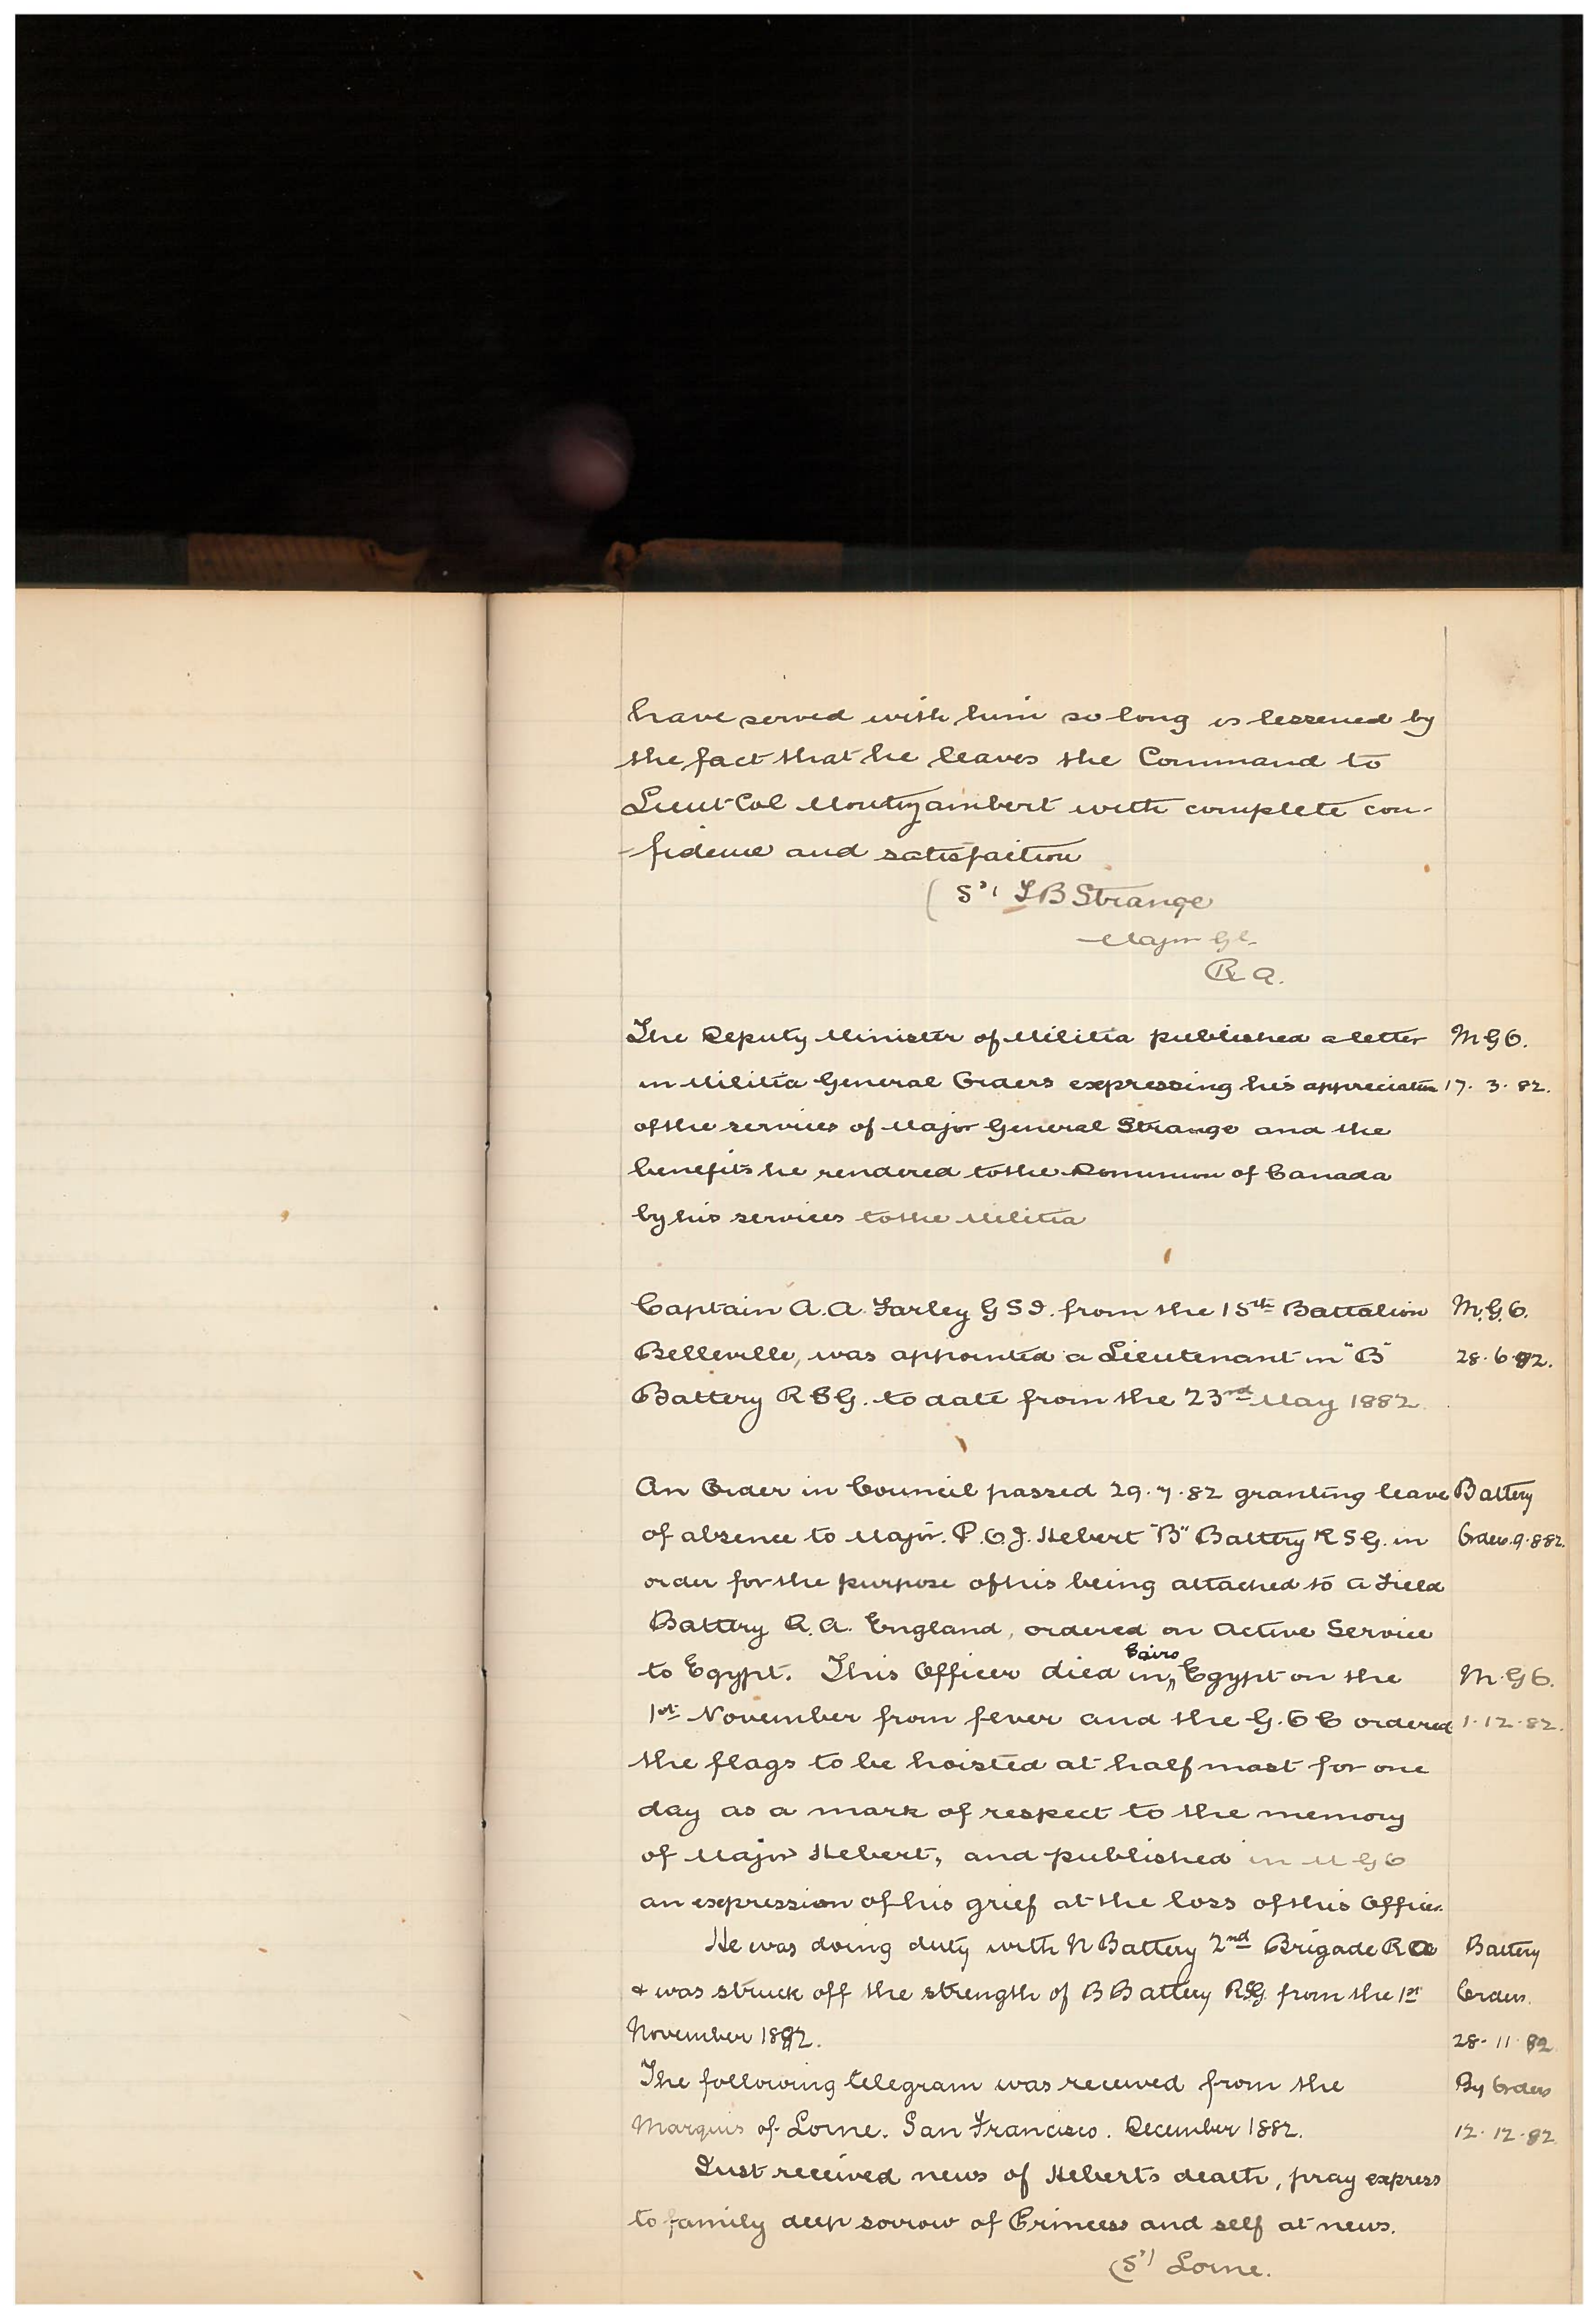 have served with him so long is lessened by
the fact that he leaves the Command to
Lieut-Col Montizambert with complete con-
-fidence and satisfaction
(Sd) T B Strange
Major Gl.
R A.
The Deputy Minister of Militia published a letter M G O.
in Militia General Orders expressing his appreciation 17. 3. 82.
of the services of Major General Strange and the
benefits he rendered to the Dominion of Canada
by his services to the Militia
Captain A. A. Farley G S I. from the 15th Battalion M. G. O.
Belleville, was appointed a Lieutenant in "B" 28. 6. 82.
Battery R S G. to date from the 23rd May 1882.
An Order in Council passed 29. 7. 82 granting leave Battery
of absence to Major. P. O. J. Hebert "B" Battery R S G. in Orders. 9. 8 82.
order for the purpose of his being attached to a Field
Battery R. A. England, ordered on Active Service
to Egypt. This Officer died in Cairo, Egypt on the M. G O.
1st November from fever and the G. O C ordered 1. 12. 82.
the flags to be hoisted at half mast for one
day as a mark of respect to the memory
of Major Hebert, and published in M G O
an expression of his grief at the loss of this Officer.
He was doing duty with N Battery 2nd Brigade R A Battery
& was struck off the strength of B Battery RSG from the 1st Orders.
November 1882. 28. 11. 82
The following telegram was received from the By Orders
Marquis of Lorne. San Francisco. December 1882. 12. 12. 82.
Just received news of Heberts death, pray express
to family deep sorrow of Princess and self at news.
(Sd) Lorne.